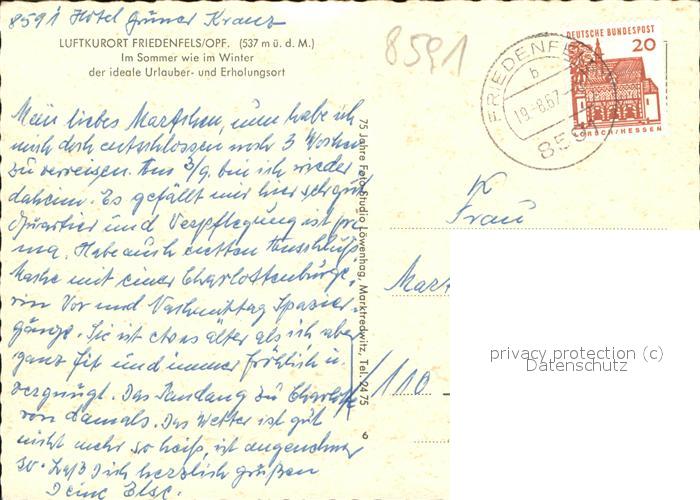 8591 Hotel Grüner Kranz
LUFTKURORT FRIEDENFELS/OPF. (537 m ü. d. M.)
Im Sommer wie im Winter
der ideale Urlauber- und Erholungsort
8591
DEUTSCHE BUNDESPOST
20
LORSCH/HESSEN
FRIEDENFELS
b
19.-8.67
859
Mein liebes Martchen, nun habe ich
mich doch entschlossen noch 3 Wochen
zu verreisen. Am 3/9. bin ich wieder
daheim. Es gefällt mir hier sehr gut
Quartier und Verpflegung ist pri
ma. Habe auch netten Anschluß
Mache mit einer Charlottenburge-
rin Vor und Nachmittag Spazier-
gänge. Sie ist etwas älter als ich aber
ganz fit und immer fröhlich u.
vergnügt. Das Pendang zu Charlotte
von damals. Das Wetter ist gut
nicht mehr so heiß, ist angenehmer
so. Laß Dich herzlich grüßen
Deine Else.
75 Jahre Foto-Studio Löwenhag, Marktredwitz, Tel. 2475
Frau
Mart
1/110
privacy protection (c)
Datenschutz